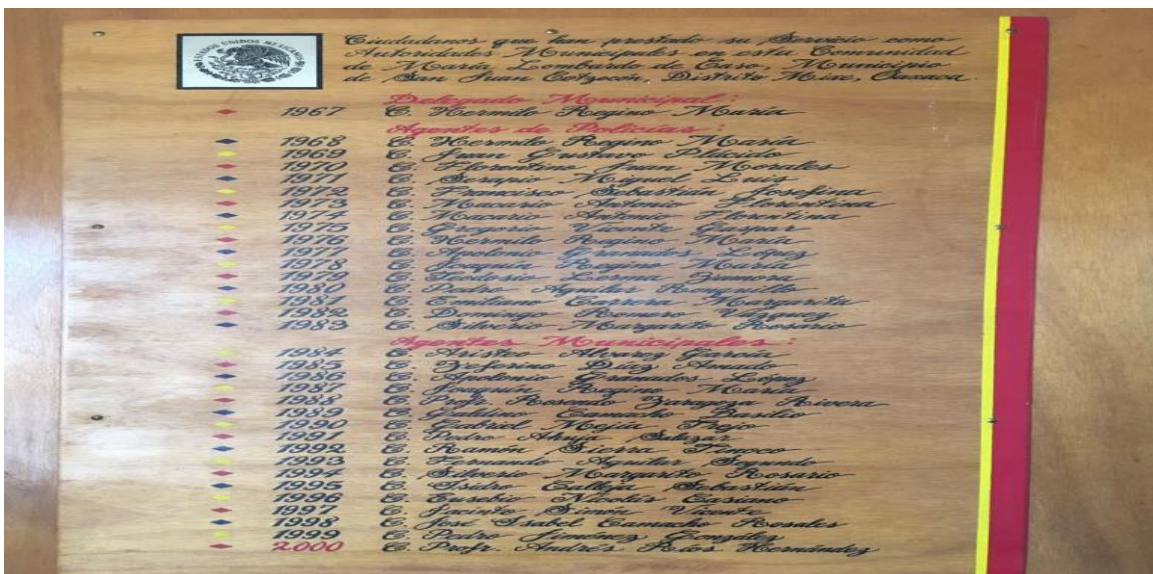 ESTADOS UNIDOS MEXICANOS
Ciudadanos que han prestado su Servicio como
Autoridades Municipales en esta Comunidad
de María Lombardo de Caso, Municipio
de San Juan Cotzocón, Distrito Mixe, Oaxaca.
Delegado Municipal:
1967 C. Hermilo Regino María
Agentes de Policías:
1968 C. Hermilo Regino María
1969 C. Juan Gustavo Plácido
1970 C. Florentino Juan Morales
1971 C. Serapio Miguel Luis
1972 C. Francisco Sebastián Josefina
1973 C. Macario Antonio Florentina
1974 C. Macario Antonio Florentina
1975 C. Gregorio Vicente Gaspar
1976 C. Hermilo Regino María
1977 C. Apolonio Granados López
1978 C. Joaquín Regino María
1979 C. Teodosio Lerma Zamora
1980 C. Pedro Aguilar
1981 C. Emiliano Carrera Margarita
1982 C. Domingo Romero Vázquez
1983 C. Silverio Margarito Rosario
Agentes Municipales:
1984 C. Aristeo Alvarez García
1985 C. Zeferino Díaz Amado
1986 C. Apolonio Granados López
1987 C. Joaquín Regino María
1988 C. Profr. Rosendo Zaragoza Rivera
1989 C. Galdino Camacho Basilio
1990 C. Gabriel Mejía Trejo
1991 C. Pedro Ahuja Salazar
1992 C. Ramón Sierra Tinoco
1993 C. Fernando Aguilar Segundo
1994 C. Silverio Margarito Rosario
1995 C. Isidro Calleja Sebastián
1996 C. Eusebio Nicolás Casiano
1997 C. Jacinto Simón Vicente
1998 C. José Isabel Camacho Rosales
1999 C. Pedro Jiménez González
2000 C. Profr. Andrés Ríos Hernández